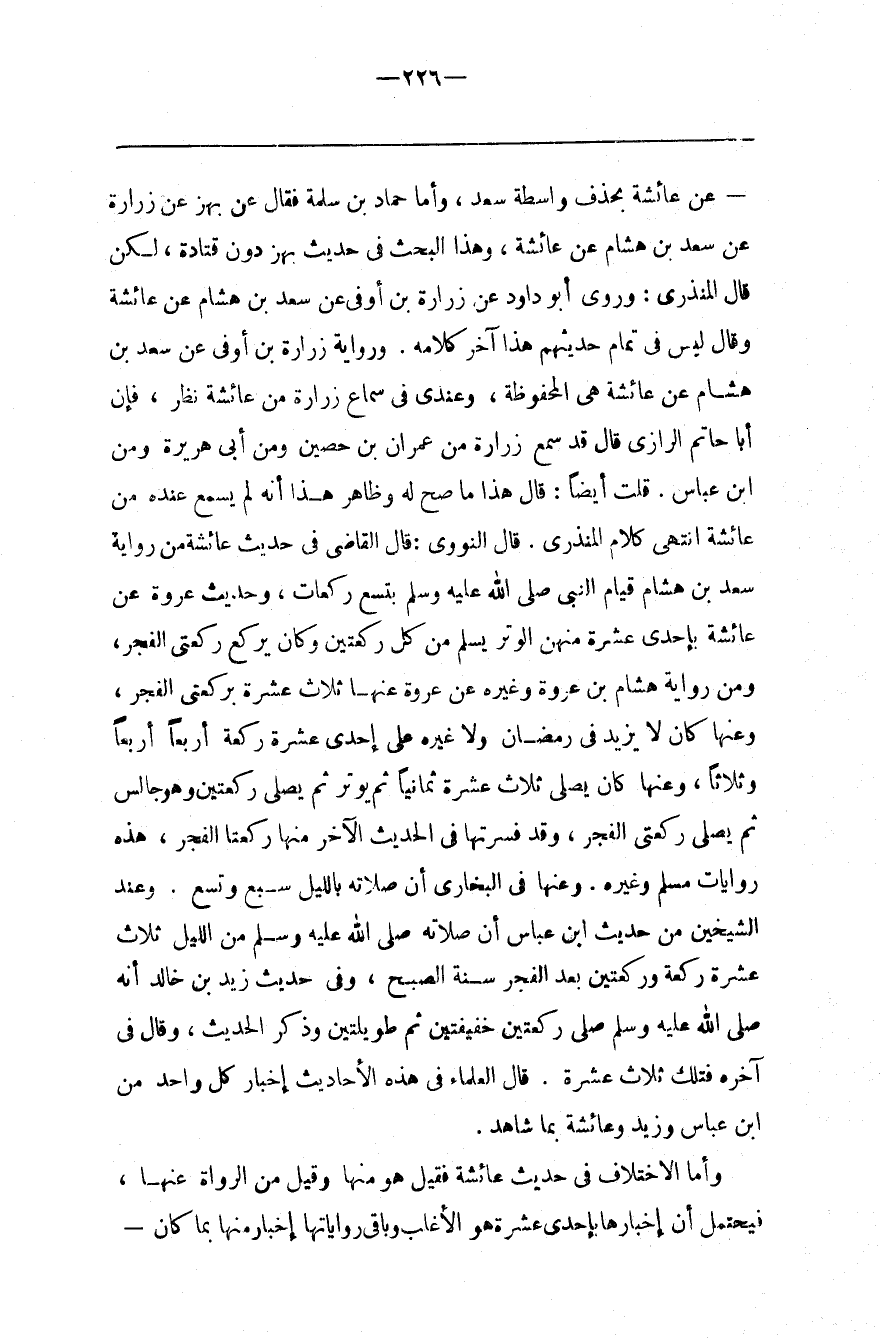 —٢٢٦—
— عن عائشة بحذف واسطة سعد ، وأما حماد بن سلمة فقال عن بهز عن زرارة
عن سعد بن هشام عن عائشة ، وهذا البحث فى حديث بهز دون قتادة ، لـكن
قال المنذرى : وروى أبو داود عن زرارة بن أوفى عن سعد بن هشام عن عائشة
وقال ليس فى تمام حديثهم هذا آخر كلامه . ورواية زرارة بن أوفى عن سعد بن
هشـام عن عائشة هى المحفوظة ، وعندى فى سماع زرارة من عائشة نظر ، فإن
أبا حاتم الرازى قال قد سمع زرارة من عمران بن حصين ومن أبى هريرة ومن
ابن عباس . قلت أيضاً : قال هذا ما صح له وظاهر هـذا أنه لم يسمع عنده من
عائشة انتهى كلام المنذرى . قال النووى : قال القاضى فى حديث عائشة من رواية
سعد بن هشام قيام النبى صلى الله عليه وسلم بتسع ركعات ، وحديث عروة عن
عائشة بإحدى عشرة منهن الوتر يسلم من كل ركعتين وكان يركع ركعتى الفجر،
ومن رواية هشام بن عروة وغيره عن عروة عنهـا ثلاث عشرة بركعتى الفجر ،
وعنها كان لا يزيد فى رمضـان ولا غيره على إحدى عشرة ركعة أربعاً أربعاً
وثلاثاً ، وعنها كان يصلى ثلاث عشرة ثمانياً ثم يوتر ثم يصلى ركعتين وهو جالس
ثم يصلى ركعتى الفجر ، وقد فسرتها فى الحديث الآخر منها ركعتا الفجر ، هذه
روايات مسلم وغيره . وعنها فى البخارى أن صلاته بالليل سـبع وتسع . وعند
الشيخين من حديث ابن عباس أن صلاته صلى الله عليه وسـلم من الليل ثلاث
عشرة ركعة وركعتين بعد الفجر سـنة الصبح ، وفى حديث زيد بن خالد أنه
صلى الله عليه وسلم صلى ركعتين خفيفتين ثم طويلتين وذكر الحديث ، وقال فى
آخره فتلك ثلاث عشرة . قال العلماء فى هذه الأحاديث إخبار كل واحد من
ابن عباس وزيد وعائشة بما شاهد .
وأما الاختلاف فى حديث عائشة فقيل هو منها وقيل من الرواة عنهـا ،
فيحتمل أن إخبارها بإحدى عشرة هو الأغلب وباقى رواياتها إخبار منها بما كان —